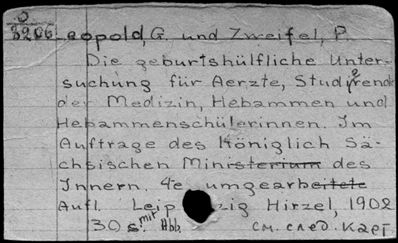 O
3206
Leopold, G. und Zweifel, P.
Die geburtshülfliche Unter-
suchung für Aerzte, Studierende
der Medizin, Hebammen und
Hebammenschülerinnen. Im
Auftrage des Königlich Sä-
chsischen Ministerium des
Innern. 4e umgearbeitete
Aufl. Leipzig Hirzel, 1902
30 s. mit Abb. см. след. карт